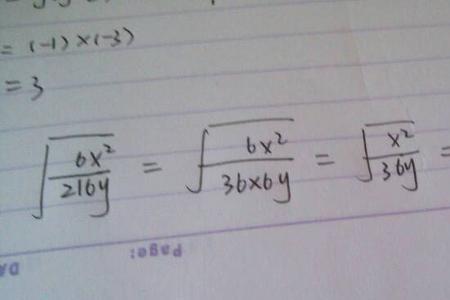 = (-1) × (-3)
= 3
√(6x²/216y) = √(6x²/36×6y) = √(x²/36y) =
Page: